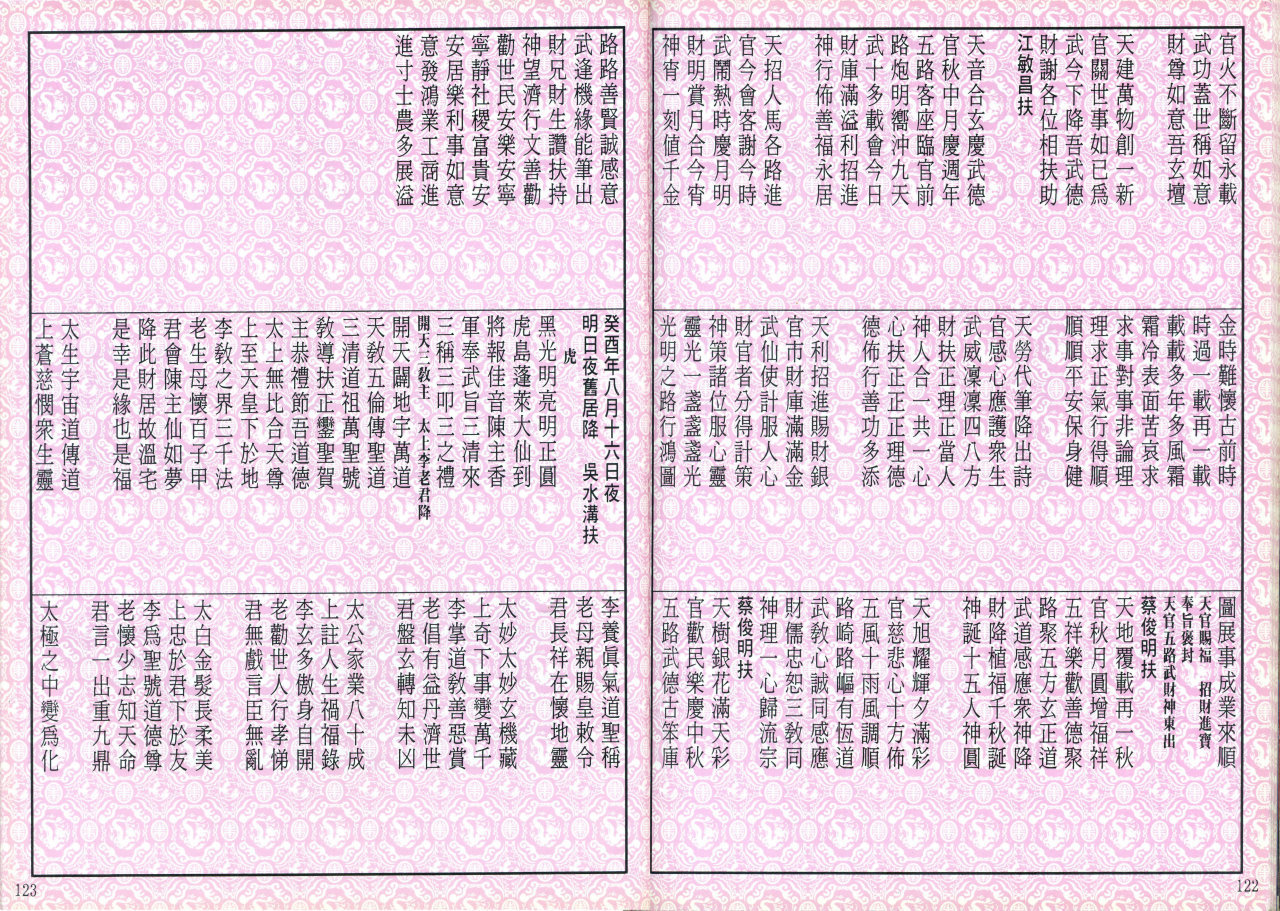 官火不斷留永載
武功蓋世稱如意
財尊如意吾玄壇
天建萬物創一新
官關世事如已爲
武今下降吾武德
財謝各位相扶助
江敏昌扶
天音合玄慶武德
官秋中月慶週年
五路客座臨官前
路炮明嚮沖九天
武十多載會今日
財庫滿溢利招進
神行佈善福永居
天招人馬各路進
官今會客謝今時
武鬧熱時慶月明
財明賞月合今宵
神宵一刻值千金
金時難懷古前時
時過一載再一載
載載多年多風霜
霜冷表面苦哀求
求事對事非論理
理求正氣行得順
順順平安保身健
天勞代筆降出詩
官感心應護衆生
武威凜凜四八方
財扶正理正當人
神人合一共一心
心扶正正正理德
德佈行善功多添
天利招進賜財銀
官市財庫滿滿金
武仙使計服人心
財官者分得計策
神策諸位服心靈
靈光一盞盞盞光
光明之路行鴻圖
圖展事成業來順
天官賜福　招財進寶
奉旨褒封
天官五路武財神東出
蔡俊明扶
天地覆載再一秋
官秋月圓增福祥
五祥樂歡善德聚
路聚五方玄正道
武道感應衆神降
財降植福千秋誕
神誕十五人神圓
天旭耀輝夕滿彩
官慈悲心十方佈
五風十雨風調順
路崎路嶇有恆道
武敎心誠同感應
財儒忠恕三敎同
神理一心歸流宗
蔡俊明扶
天樹銀花滿天彩
官歡民樂慶中秋
五路武德古笨庫
122
路路善賢誠感意
武逢機緣能筆出
財兄財生讚扶持
神望濟行文善勸
勸世民安樂安寧
寧靜社稷富貴安
安居樂利事如意
意發鴻業工商進
進寸士農多展溢
癸酉年八月十六日夜
明日夜舊居降　吳水溝扶
虎
黑光明亮明正圓
虎島蓬萊大仙到
將報佳音陳主香
軍奉武旨三清來
三稱三叩三之禮
開天三敎主　太上李老君降
開天闢地宇萬道
天敎五倫傳聖道
三清道祖萬聖號
敎導扶正鑾聖賀
主恭禮節吾道德
太上無比合天尊
上至天皇下於地
李敎之界三千法
老生母懷百子甲
君會陳主仙如夢
降此財居故溫宅
是幸是緣也是福
太生宇宙道傳道
上蒼慈憫衆生靈
李養眞氣道聖稱
老母親賜皇敕令
君長祥在懷地靈
太妙太妙玄機藏
上奇下事變萬千
李掌道敎善惡賞
老倡有益丹濟世
君盤玄轉知未凶
太公家業八十成
上註人生禍福錄
李玄多傲身自開
老勸世人行孝悌
君無戲言臣無亂
太白金髮長柔美
上忠於君下於友
李爲聖號道德尊
老懷少志知天命
君言一出重九鼎
太極之中變爲化
123